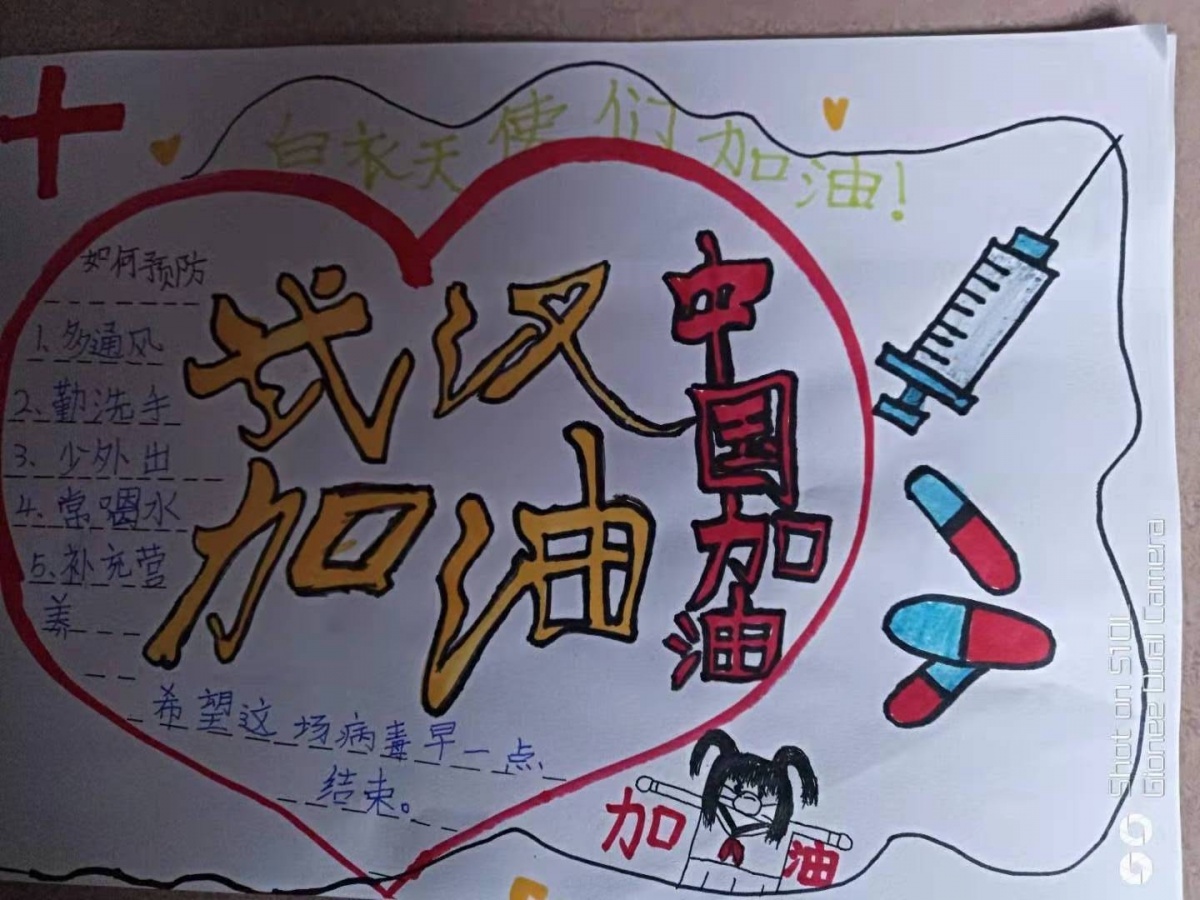 白衣天使们加油!
如何预防
1.多通风
2.勤洗手
3.少外出
4.常喝水
5.补充营
养
武汉
加油
中国加油
希望这场病毒早一点
结束。
加油
Shot on S10L
Gionee Dual Camera